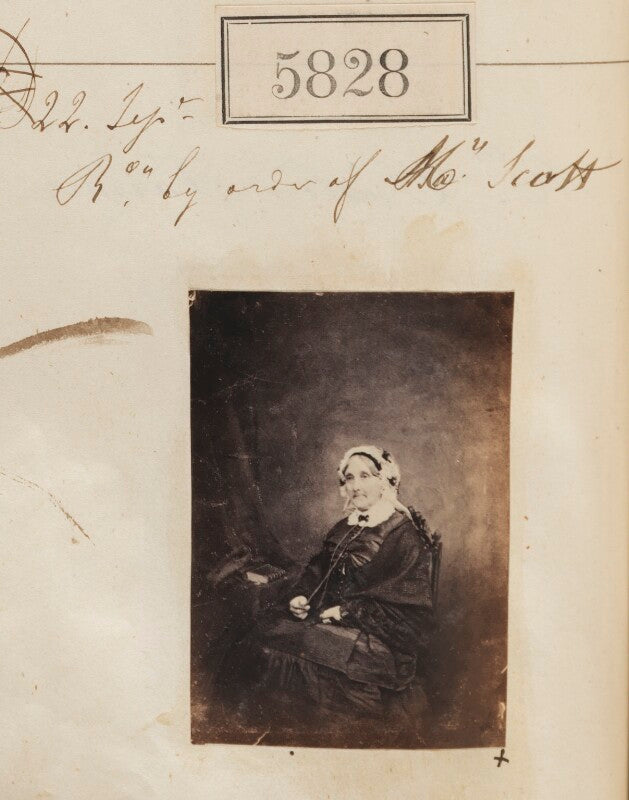 5828
22. Sepr
Ron by order of Mrs Scott